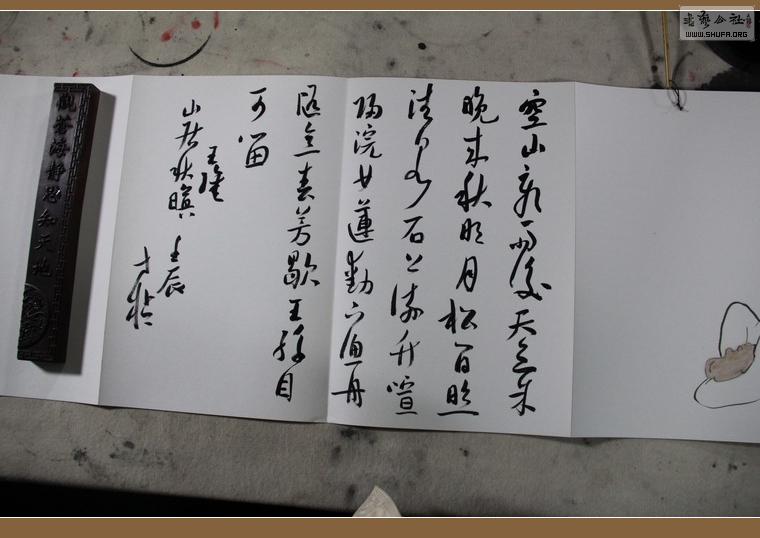 書藝公社
WWW.SHUFA.ORG
空山新雨後天氣
晚来秋明月松間照
清泉石上流竹喧
歸浣女蓮動下漁舟
随意春芳歇王孫自
可留
王維
山居秋暝
壬辰
觀蒼海靜思知天地